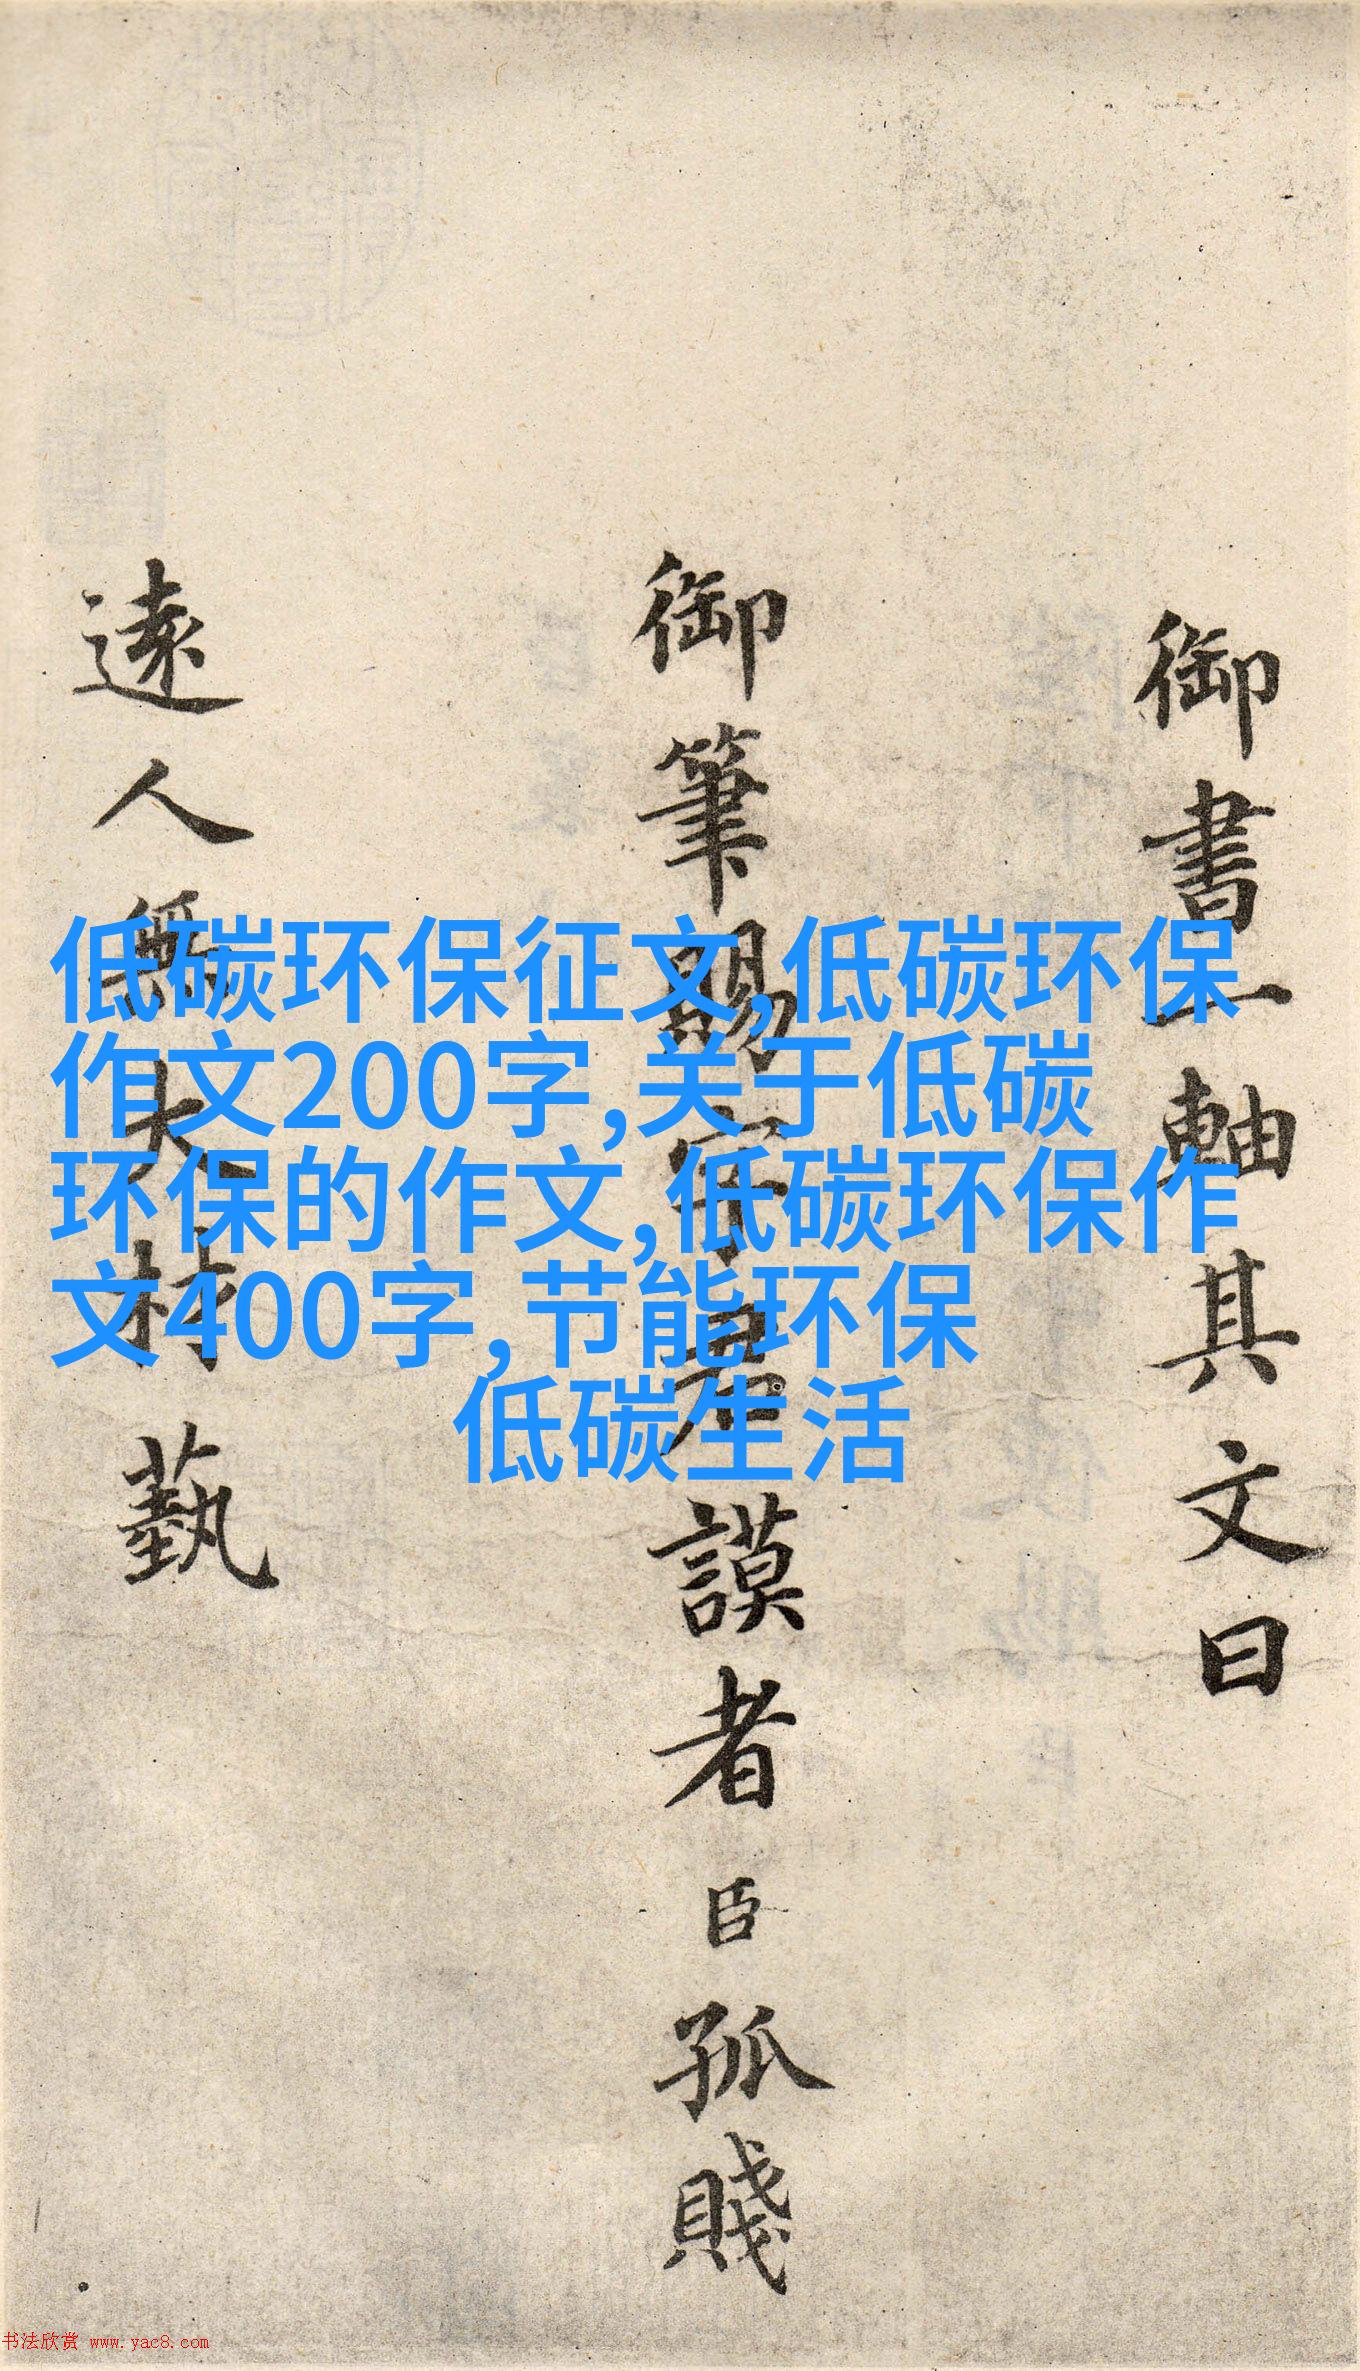 御書一軸其文曰
御筆賜字君謨者臣孤賤
遠人無大材藝
低碳环保征文,低碳环保
作文200字,关于低碳
环保的作文,低碳环保作
文400字,节能环保
低碳生活
书法欣赏 www.yac8.com